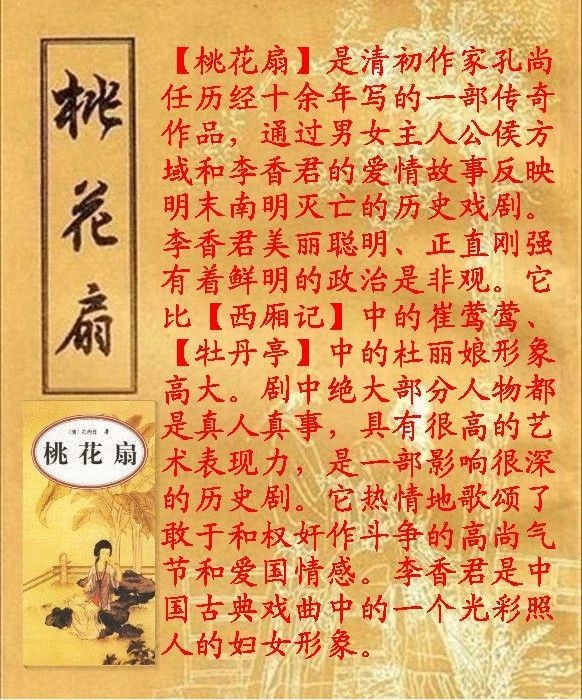 桃花扇
【桃花扇】是清初作家孔尚
任历经十余年写的一部传奇
作品，通过男女主人公侯方
域和李香君的爱情故事反映
明末南明灭亡的历史戏剧。
李香君美丽聪明、正直刚强
有着鲜明的政治是非观。它
比【西厢记】中的崔莺莺、
【牡丹亭】中的杜丽娘形象
高大。剧中绝大部分人物都
是真人真事，具有很高的艺
术表现力，是一部影响很深
的历史剧。它热情地歌颂了
敢于和权奸作斗争的高尚气
节和爱国情感。李香君是中
国古典戏曲中的一个光彩照
人的妇女形象。
桃花扇